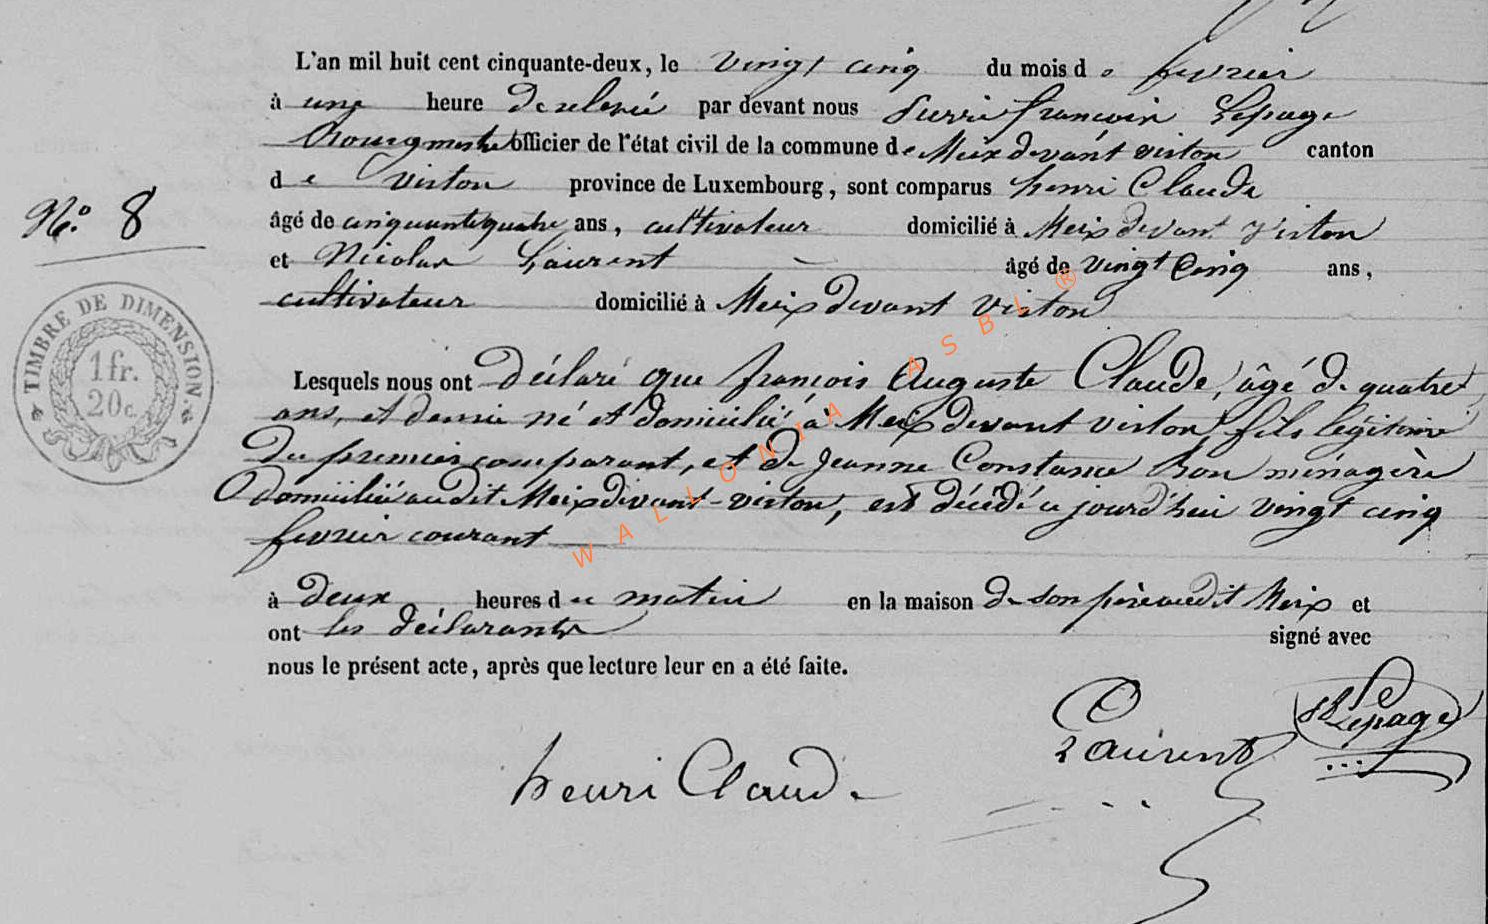 L'an mil huit cent cinquante-deux, le vingt cinq du mois de fevrier
à une heure de relevée par devant nous Pierre françois Lepage
Bourgmestre officier de l'état civil de la commune de Meix devant virton canton
de virton province de Luxembourg, sont comparus henri Claude
âgé de cinquante quatre ans, cultivateur domicilié à Meix devant virton
N.o 8
et Nicolas Laurent âgé de vingt cinq ans,
cultivateur domicilié à Meix devant virton
TIMBRE DE DIMENSION
1 fr.
20 c.
Lesquels nous ont déclaré que françois Auguste Claude, âgé de quatre
ans, et demi né et domicilié à Meix devant virton, fils légitime
du premier comparant, et de Jeanne Constance Bon ménagère
domiciliée audit Meix devant-virton, est décédé ce jourd'hui vingt cinq
fevrier courant
à deux heures du matin en la maison de son père audit Meix et
ont les déclarants signé avec
nous le présent acte, après que lecture leur en a été faite.
Laurent Lepage
henri Claude
WALLONIA ASBL ®